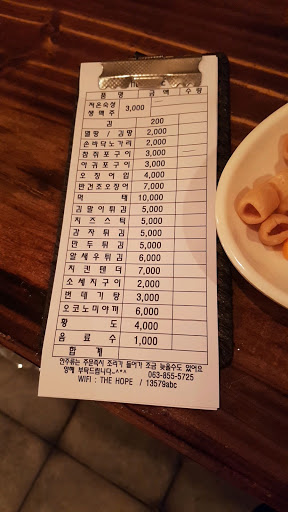 품 명 금 액 수 량
저온숙성 생맥주 3,000
김 200
멸땅 / 김땅 2,000
손바닥노가리 2,000
참쥐포구이 3,000
아귀포구이 3,000
오징어입 4,000
반건조오징어 7,000
먹태 10,000
김말이튀김 5,000
치즈스틱 5,000
감자튀김 5,000
만두튀김 5,000
알새우튀김 6,000
치킨텐더 7,000
소세지구이 2,000
번데기탕 3,000
오코노미야끼 6,000
황도 4,000
음료수 1,000
합 계
안주류는 주문즉시 조리가 들어가 조금 늦을수도 있어요
양해 부탁드립니다~^^* 063-855-5725
WIFI : THE HOPE / 13579abc